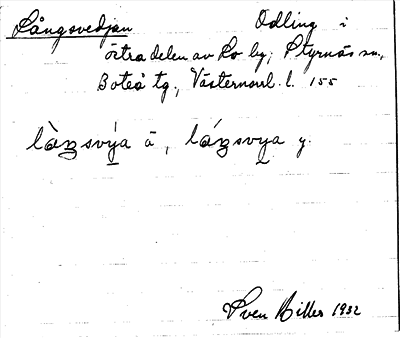 Långsvedjan Odling i
östra delen av Lo by, Styrnäs sn.,
Boteå tg., Västernorrl. l. 155
làŋsvýa ä, láŋsvya y.
Sven Hiller 1932